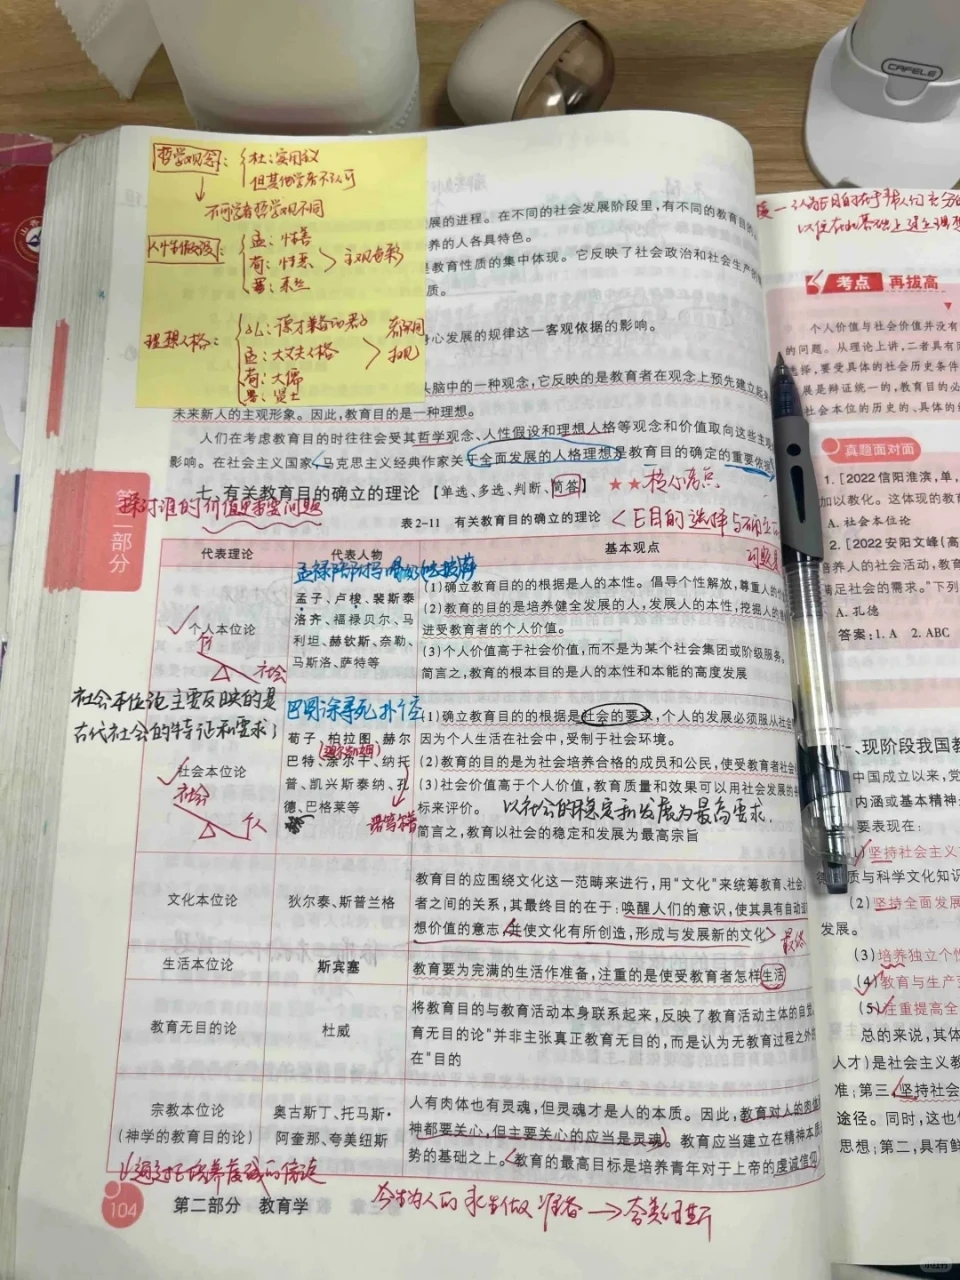 CAFELE
哲学观念：
杜：实用主义
但其他学者不认可
不同学者哲学观不同
人性假设：
孟：性善
荀：性恶
墨：素丝
主观色彩
理想人格：
孔：德才兼备的君子
孟：大丈夫人格
荀：大儒
墨：贤士
展的进程。在不同的社会发展阶段里，有不同的教育目的
养的人各具特色。
是教育性质的集中体现。它反映了社会政治和社会生产的
质。
心发展的规律这一客观依据的影响。
头脑中的一种观念，它反映的是教育者在观念上预先建立起来
未来新人的主观形象。因此，教育目的是一种理想。
人们在考虑教育目的时往往会受其哲学观念、人性假设和理想人格等观念和价值取向这些主观
影响。在社会主义国家，马克思主义经典作家关于全面发展的人格理想是教育目的确定的重要依据
第二部分
七、有关教育目的确立的理论 【单选、多选、判断、简答】
★★核心考点
探讨谁的价值更重要问题
表 2-11 有关教育目的确立的理论
代表理论 代表人物 基本观点
个人本位论
个
社会
孟子、卢梭、裴斯泰
洛齐、福禄贝尔、马
利坦、赫钦斯、奈勒、
马斯洛、萨特等
(1)确立教育目的的根据是人的本性。倡导个性解放，尊重人的
(2)教育的目的是培养健全发展的人，发展人的本性，挖掘人的
进受教育者的个人价值。
(3)个人价值高于社会价值，而不是为某个社会集团或阶级服务。
简言之，教育的根本目的是人的本性和本能的高度发展
社会本位论主要反映的是
古代社会的特征和要求；
社会本位论
社会
个人
荀子、柏拉图、赫尔
巴特、涂尔干、纳托
普、凯兴斯泰纳、孔
德、巴格莱等
(1)确立教育目的的根据是社会的要求，个人的发展必须服从社会
因为个人生活在社会中，受制于社会环境。
(2)教育的目的是为社会培养合格的成员和公民，使受教育者社会
(3)社会价值高于个人价值，教育质量和效果可以用社会发展的
标来评价。 以社会的稳定和发展为最高要求.
简言之，教育以社会的稳定和发展为最高宗旨
文化本位论
狄尔泰、斯普兰格
教育目的应围绕文化这一范畴来进行，用“文化”来统筹教育、社会、
者之间的关系，其最终目的在于：唤醒人们的意识，使其具有自动
想价值的意志，并使文化有所创造，形成与发展新的文化
最终
生活本位论
斯宾塞
教育要为完满的生活作准备，注重的是使受教育者怎样生活
教育无目的论
杜威
将教育目的与教育活动本身联系起来，反映了教育活动主体的自觉
育无目的论”并非主张真正教育无目的，而是认为无教育过程之外的
在”目的
宗教本位论
(神学的教育目的论)
奥古斯丁、托马斯·
阿奎那、夸美纽斯
人有肉体也有灵魂，但灵魂才是人的本质。因此，教育对人的肉体
神都要关心，但主要关心的应当是灵魂。教育应当建立在精神本质
势的基础之上。教育的最高目标是培养青年对于上帝的虔诚信仰
今生为人的永生做准备→夸美纽斯
104 第二部分 教育学
考点 再拔高
个人价值与社会价值并没有
的问题。从理论上讲，二者具有
选择，要受具体的社会历史条件
展是辩证统一的，教育目的必
社会本位的历史的、具体的
真题面对面
1. [2022 信阳淮滨，单，
加以教化。这体现的教育
A. 社会本位论
2. [2022 安阳文峰(高
培养人的社会活动，教育
满足社会的需求。”下列
A. 孔德
答案：1. A 2. ABC
一、现阶段我国教
中国成立以来，党
内涵或基本精神
要表现在：
(1)坚持社会主义
质与科学文化知识
(2)坚持全面发展
发展。
(3)培养独立个性
(4)教育与生产
(5)注重提高全
总的来说，其体
人才）是社会主义教
准；第三，坚持社会
途径。同时，这也
思想；第二，具有鲜